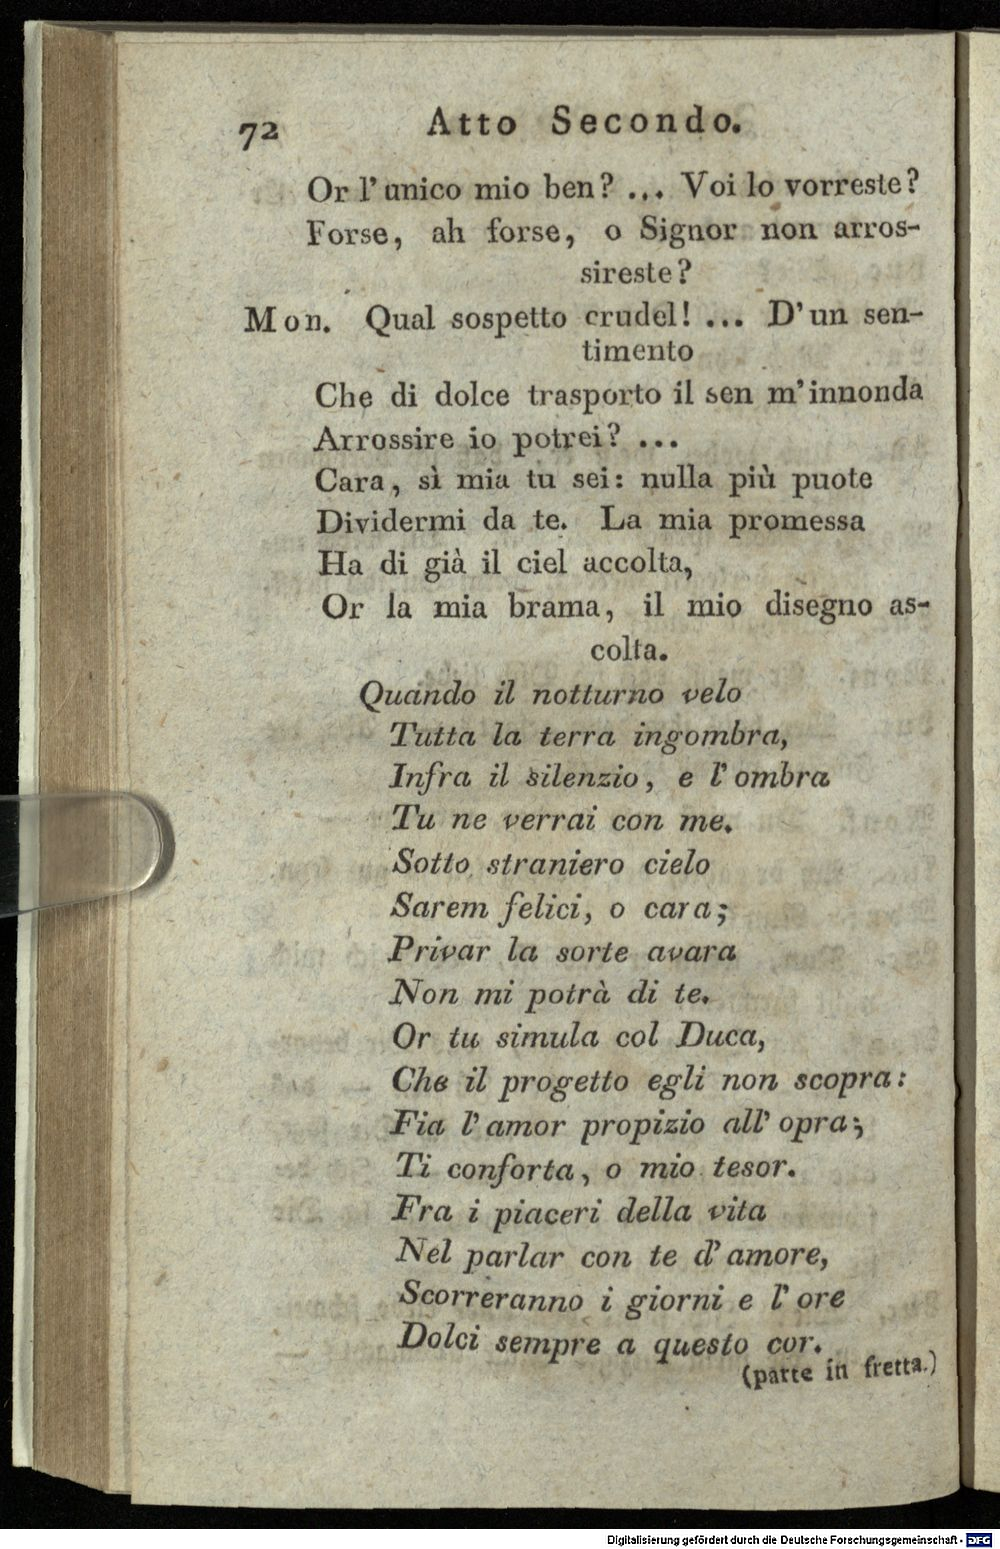 72 Atto Secondo.
Or l' unico mio ben? ... Voi lo vorreste?
Forse, ah forse, o Signor non arros-
sireste?
Mon. Qual sospetto crudel! ... D' un sen-
timento
Che di dolce trasporto il sen m' innonda
Arrossire io potrei? ...
Cara, sì mia tu sei: nulla più puote
Dividermi da te. La mia promessa
Ha di già il ciel accolta,
Or la mia brama, il mio disegno as-
colta.
Quando il notturno velo
Tutta la terra ingombra,
Infra il silenzio, e l' ombra
Tu ne verrai con me.
Sotto straniero cielo
Sarem felici, o cara;
Privar la sorte avara
Non mi potrà di te.
Or tu simula col Duca,
Che il progetto egli non scopra:
Fia l' amor propizio all' opra;
Ti conforta, o mio tesor.
Fra i piaceri della vita
Nel parlar con te d' amore,
Scorreranno i giorni e l' ore
Dolci sempre a questo cor.
(parte in fretta.)
Digitalisierung gefördert durch die Deutsche Forschungsgemeinschaft - DFG